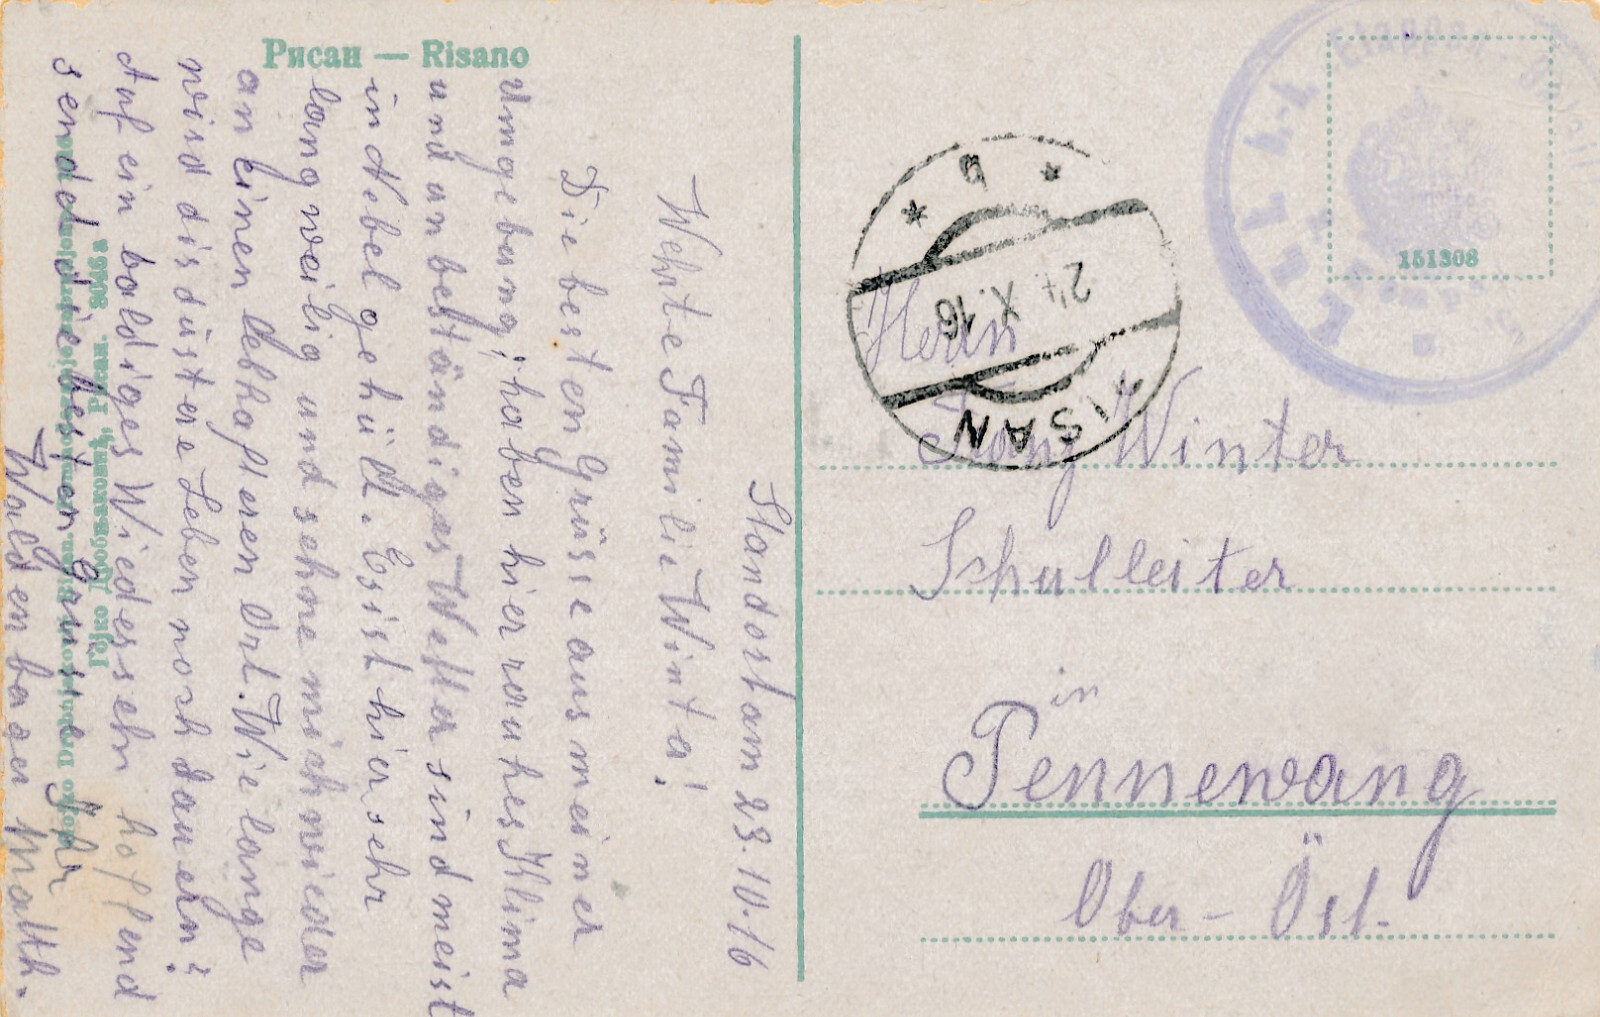 Рисан — Risano
Standort am 23.10.16
Wehrte Familie Winter!
Die besten Grüsse aus meiner
Umgebung; haben hier rauhes Klima
und unbeständiges Wetter sind meist
in Nebel gehüllt. Es ist hier sehr
langweilig und sehne mich wieder
an einen lebhafteren Ort. Wie lange
wird dis düstere Leben noch dauern?
Auf ein baldiges Wiedersehn hoffend
sendd die besten Grüsse Ihr
Waldenbaer Math.
Рисан. 8046 a
151308
RISAN
24 X. 16
* b *
Herrn
Franz Winter
Schulleiter
in
Pennewang
Ober-Öst.